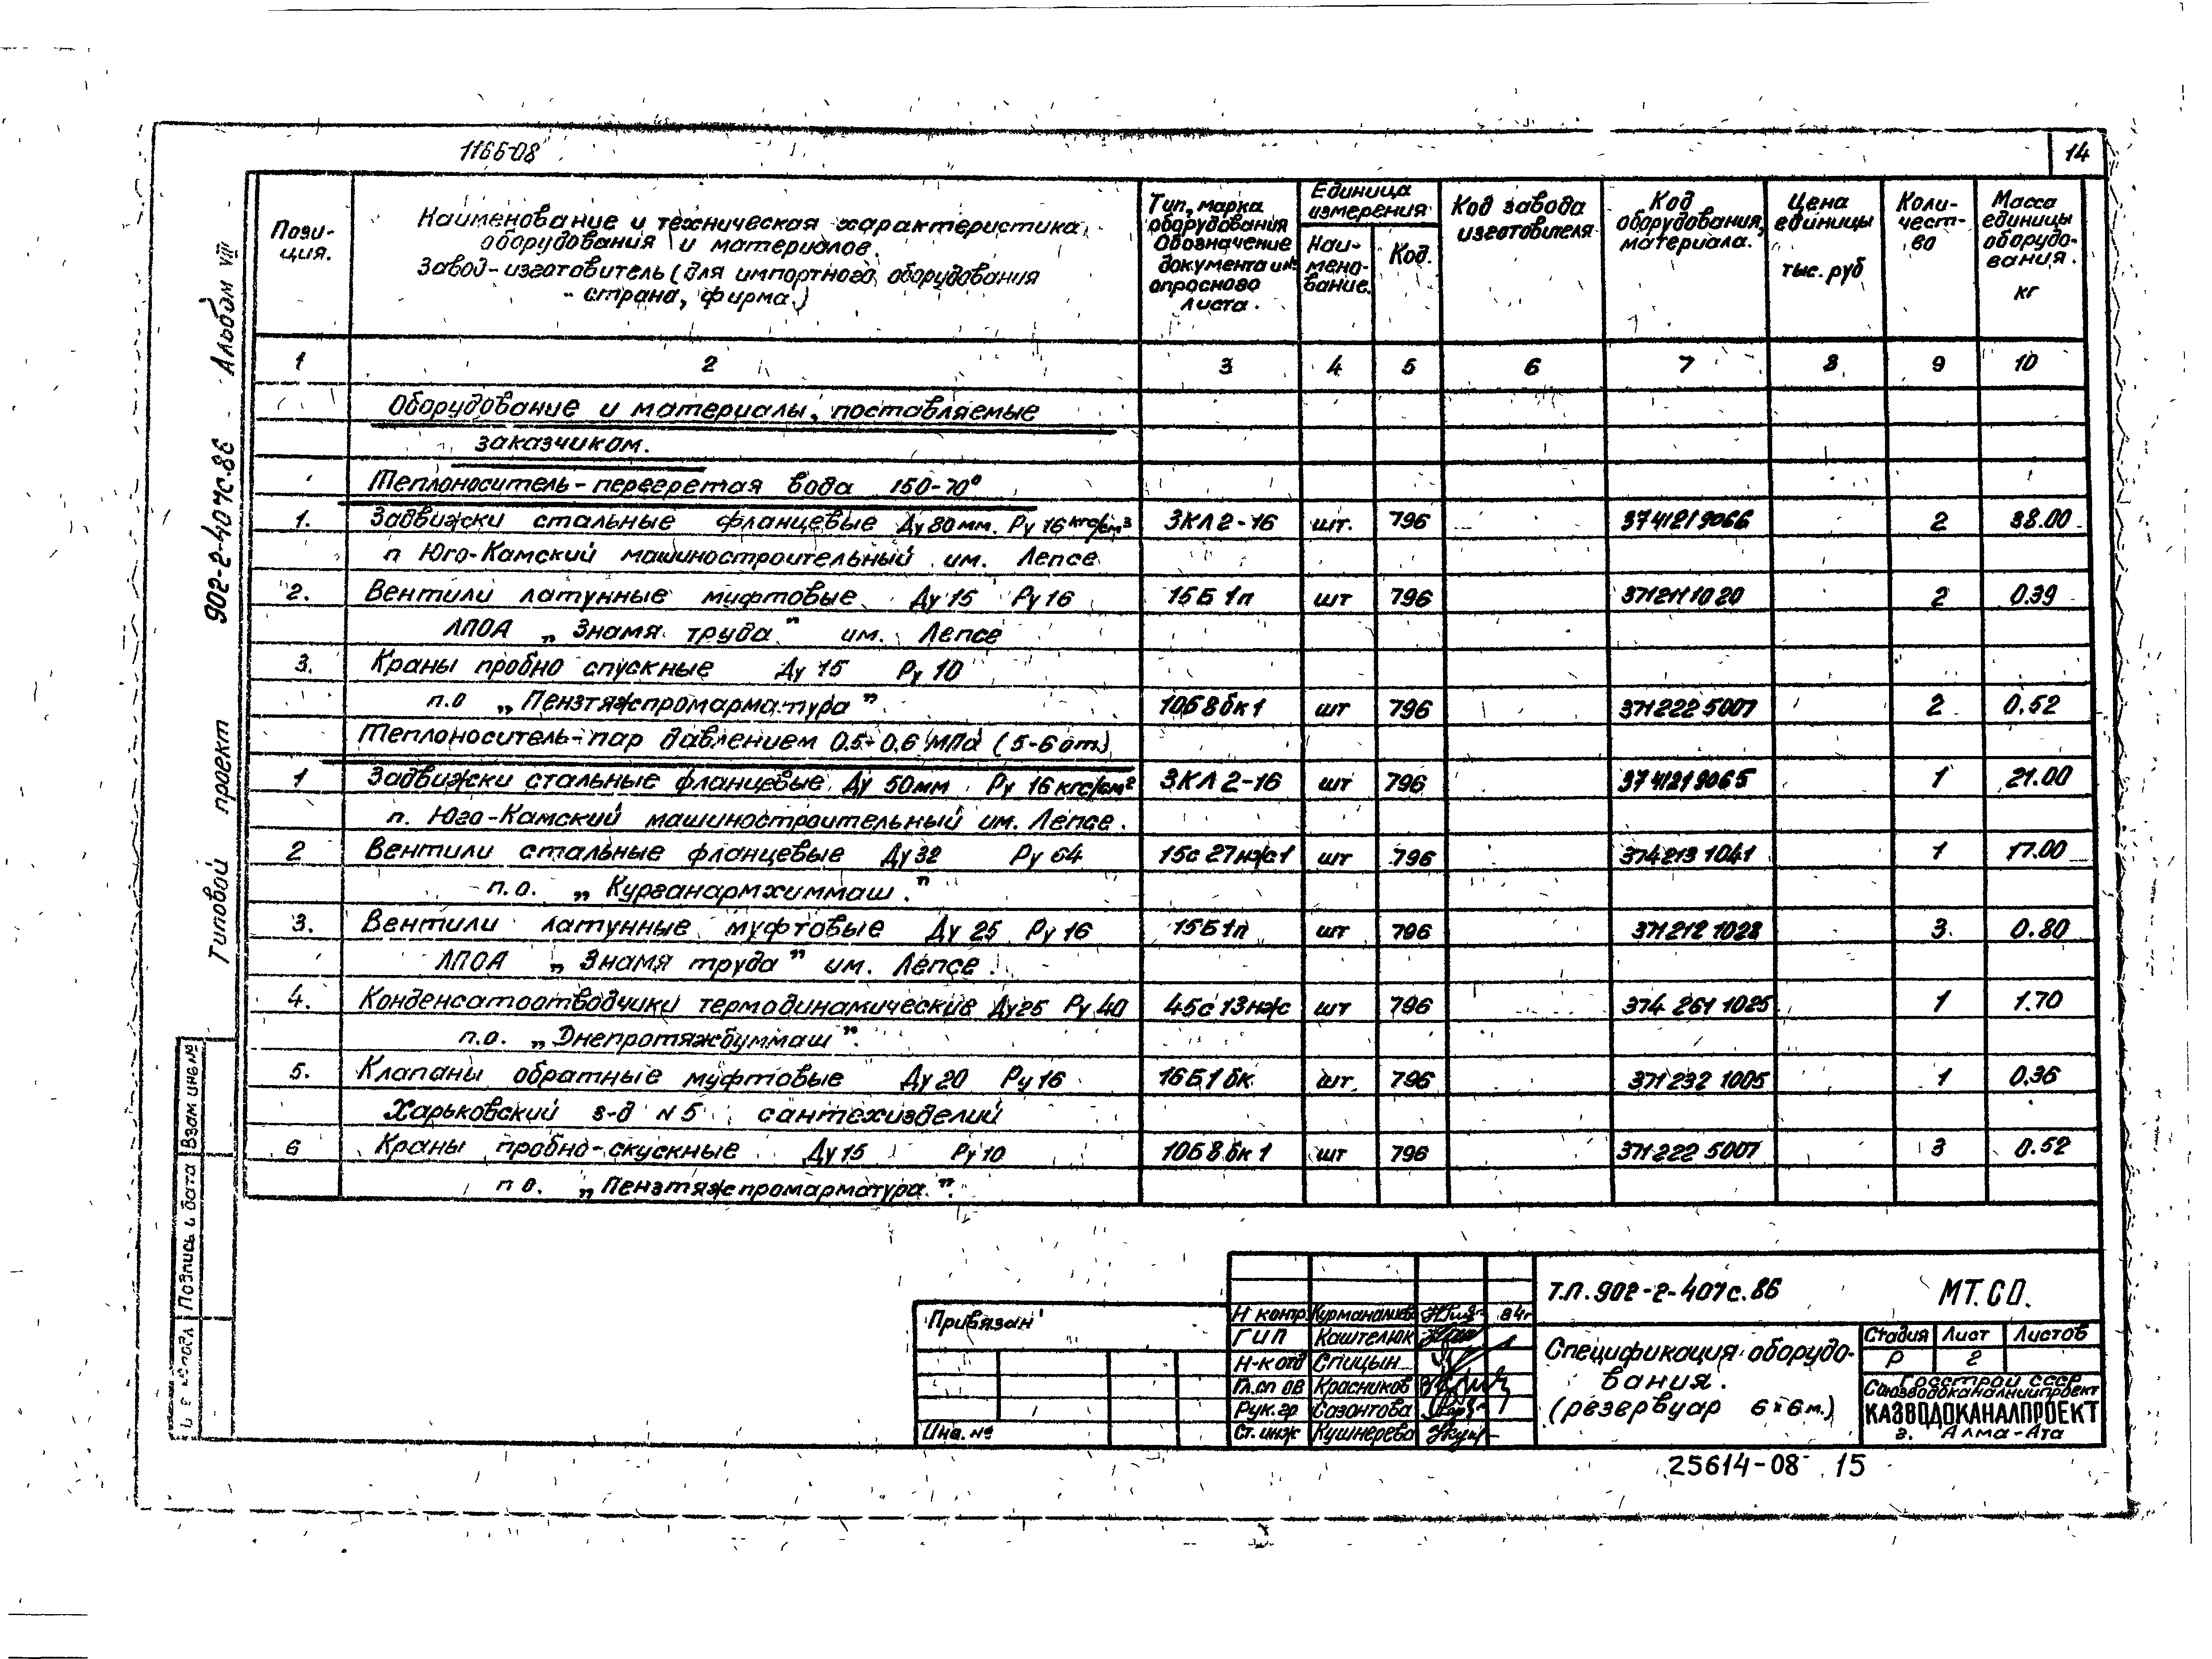 1166-08
14
Типовой проект 902-2-407с.86 Альбом VIII
Пози-
ция.
Наименование и техническая характеристика
оборудования и материалов.
Завод-изготовитель (для импортного оборудования
- страна, фирма.)
Тип, марка
оборудования
Обозначение
документа и №
опросного
листа.
Единица
измерения
Наи-
мено-
вание.
Код.
Код завода
изготовителя
Код
оборудования,
материала.
Цена
единицы
тыс. руб
Коли-
чест-
во
Масса
единицы
оборудо-
вания.
кг
1 2 3 4 5 6 7 8 9 10
Оборудование и материалы, поставляемые
заказчиком.
Теплоноситель-перегретая вода 150-70°
1. Задвижки стальные фланцевые Ду 80мм. Ру 16 кгс/см³ ЗКЛ2-16 шт. 796 3741219066 2 38.00
п Юго-Камский машиностроительный им. Лепсе
2. Вентили латунные муфтовые Ду 15 Ру 16 15Б 1п шт 796 3712111020 2 0.39
ЛПОА „Знамя труда" им. Лепсе
3. Краны пробно спускные Ду 15 Ру 10
п.о „Пензтяжпромарматура" 10Б8бк1 шт 796 371222 5007 2 0.52
Теплоноситель-пар давлением 0.5-0.6 МПа (5-6 ат.)
1 Задвижки стальные фланцевые Ду 50мм Ру 16кгс/см² ЗКЛ 2-16 шт 796 3741219065 1 21.00
п. Юго-Камский машиностроительный им. Лепсе.
2 Вентили стальные фланцевые Ду 32 Ру 64 15с 27нж1 шт 796 374213 1041 1 17.00
п.о. „Курганармхиммаш."
3. Вентили латунные муфтовые Ду 25 Ру 16 15Б1п шт 796 371212 1028 3 0.80
ЛПОА „Знамя труда" им. Лепсе.
4. Конденсатоотводчики термодинамические Ду25 Ру 40 45с 13нж шт 796 374 261 1025 1 1.70
п.о. „Днепротяжбуммаш".
5. Клапаны обратные муфтовые Ду 20 Ру 16 16Б1бк шт. 796 371232 1005 1 0.36
Харьковский з-д N5 сантехизделий
6 Краны пробно-скускные Ду 15 Ру 10 10Б8бк1 шт 796 371222 5007 3 0.52
п о. „Пензтяжпромарматура".
Взам инв №
Подпись и дата
Привязан
Инв. №
Н контр. Курманалиев 84г
ГИП Каштелюк
Н-к отд Спицын
Гл.сп ОВ Красников
Рук. гр Сазонтова
Ст. инж Кушнерева
Т.П. 902-2-407с.86 МТ.СО.
Спецификация оборудо-
вания.
(резервуар 6×6м.)
Стадия Лист Листов
Р 2
Госстрой СССР
Союзводоканалниипроект
КАЗВОДОКАНАЛПРОЕКТ
г. Алма-Ата
25614-08 15